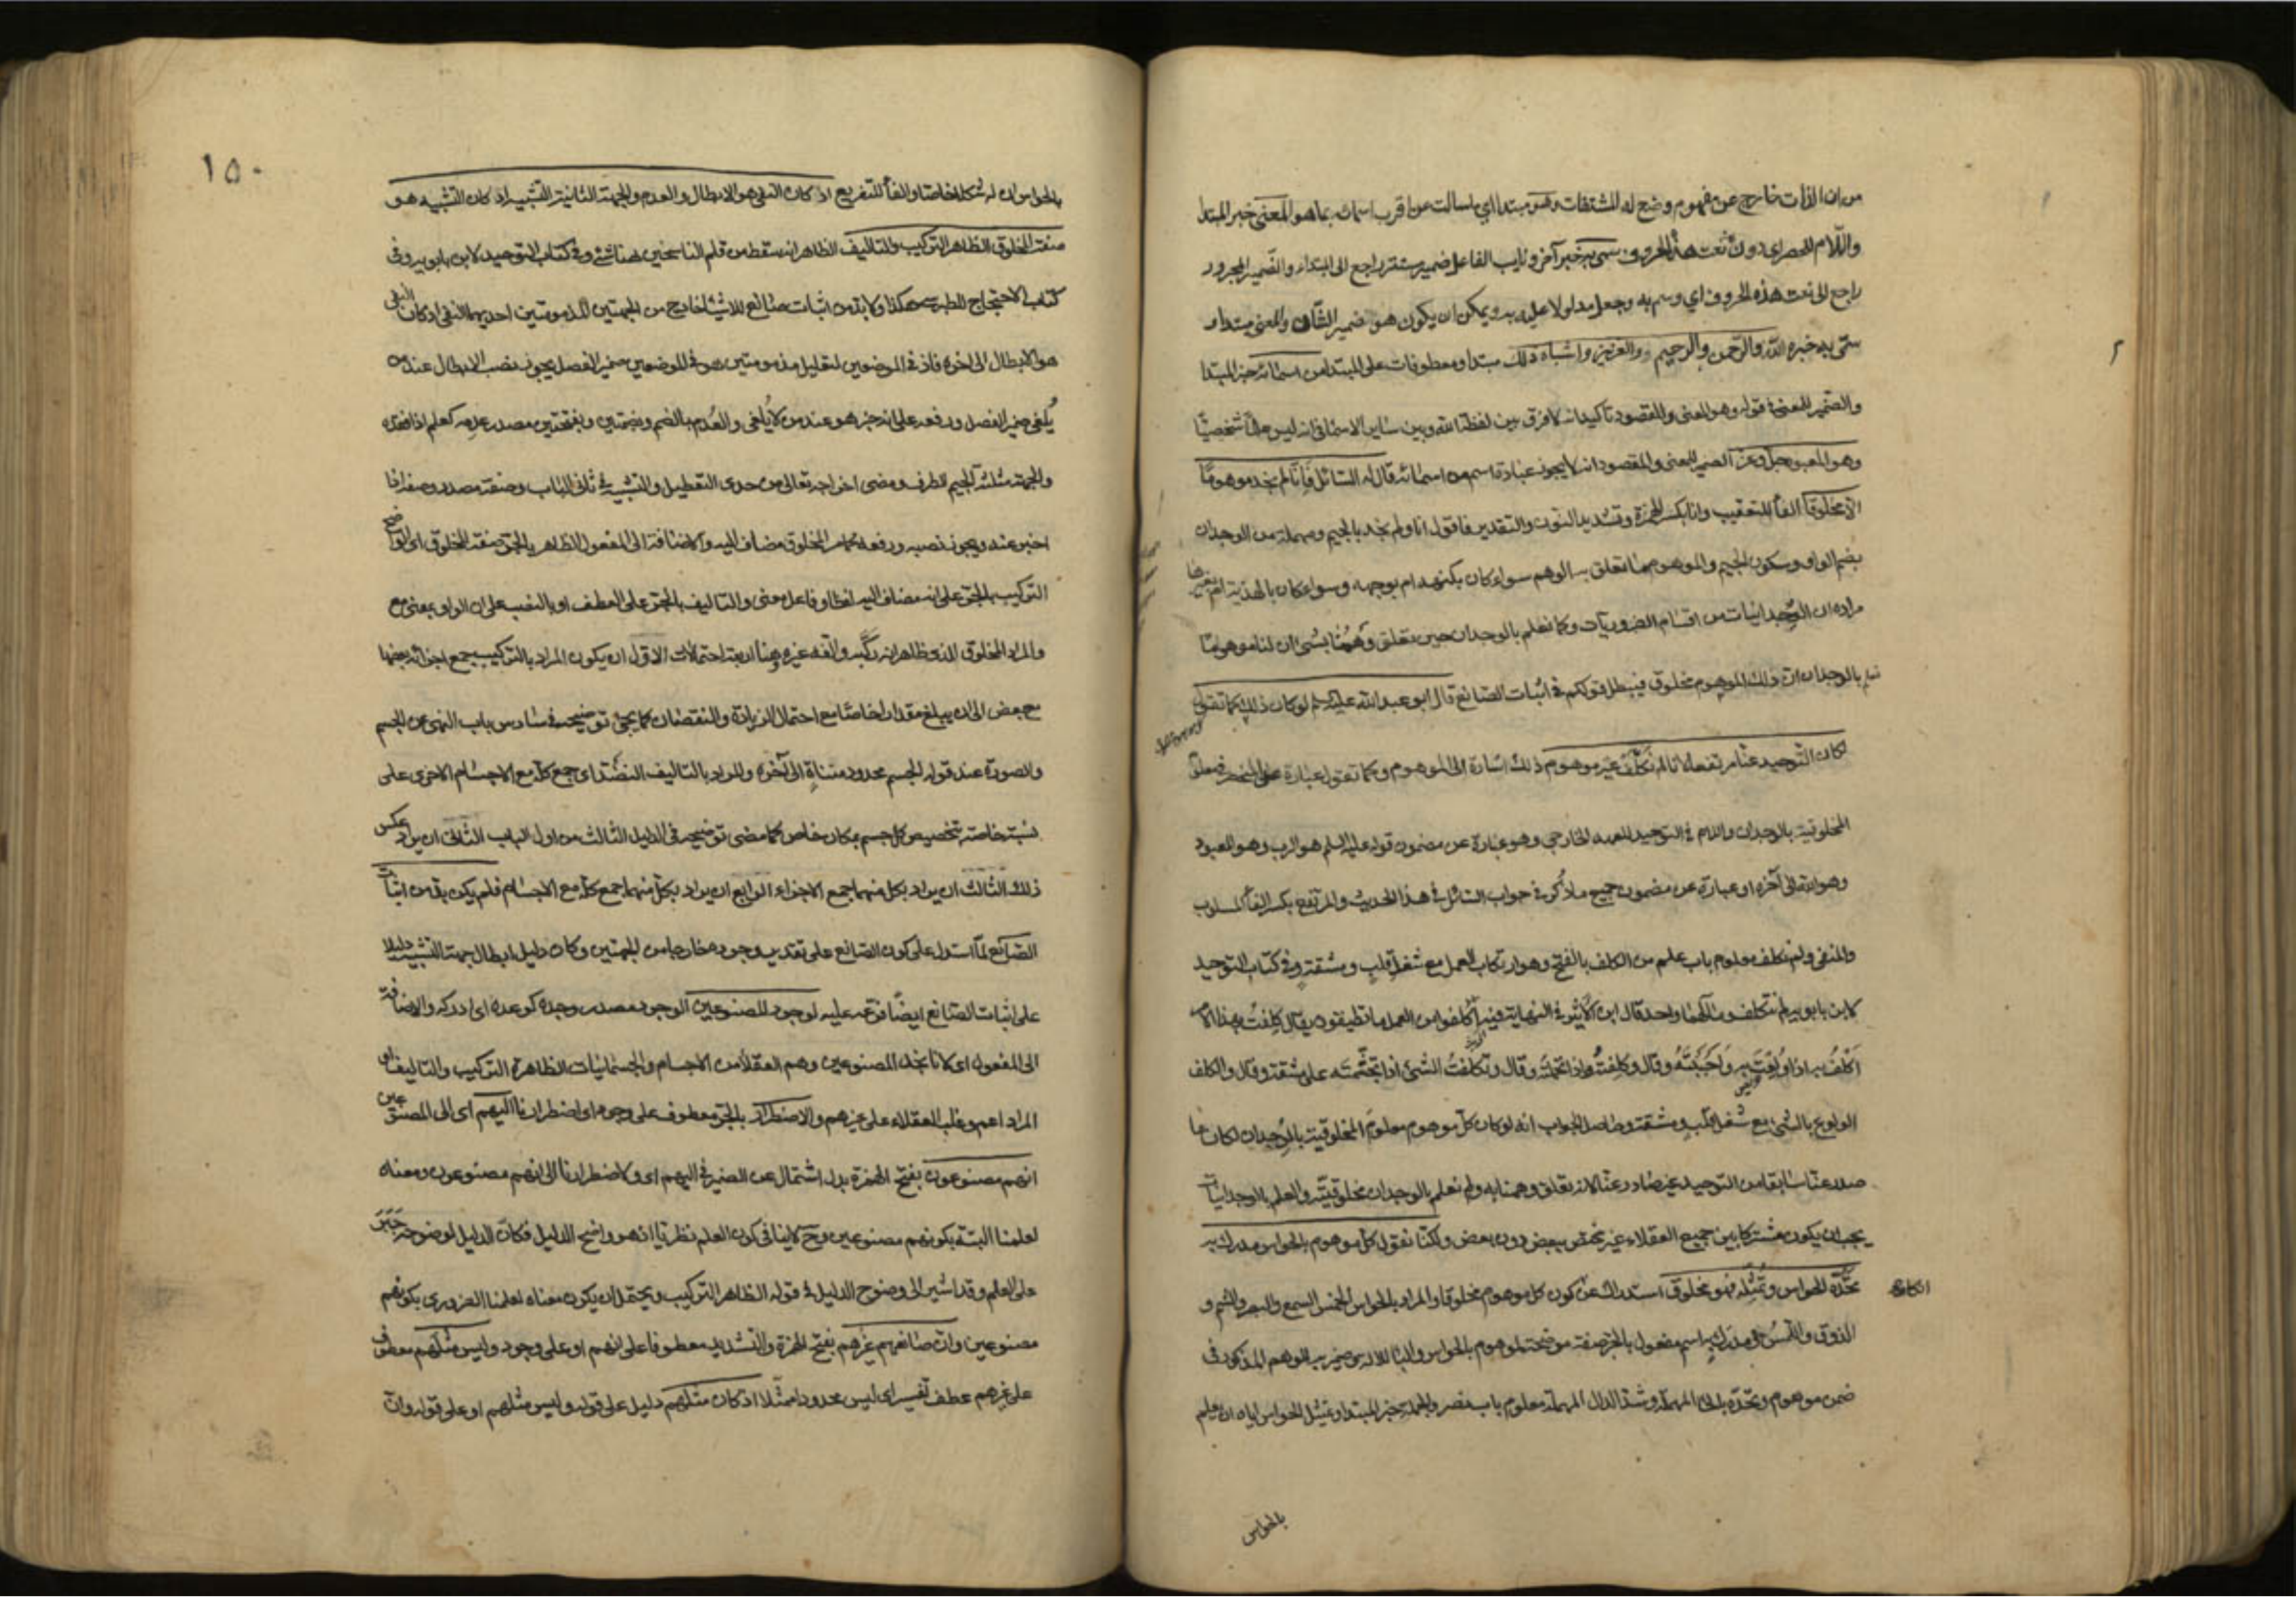 من ان الذات خارج عن مفهوم وضع له المشتقات وهو مبتدا اي ما سالت عن اقرب اسمائه بما هو المعنى خبر المبتدا
واللام للحصر اي دون نعت هذه الحروف سمى به خبر آخر ونايب الفاعل ضمير مستتر راجع الى المبتداء والضمير المجرور
راجع الى نعت هذه الحروف اي وسم به وجعل مدلولا عليه به ويمكن ان يكون هو ضمير الشان والمعنى مبتداء
سمى به خبره الله والرحمن والرحيم والعزيز واشباه ذلك مبتدا ومعطوفات على المبتدا من اسمائه خبر المبتدا
والضمير للمعنى في قوله وهو المعنى والمقصود تاكيد انه لا فرق بين لفظة الله وبين ساير الاسماء في انه ليس علما شخصيا
وهو المعبود جل وعز الضمير للمعنى والمقصود انه لا يجوز عبادة اسم من اسمائه قال له السائل فانا لم نجد موهوما
الا مخلوقا الفاء للتعقيب وانا بكسر الهمزة وتشديد النون والتقدير فاقول انا ولم نجد بالجيم ومهملة من الوجدان
بضم الواو وسكون الجيم والموهوم ما تعلق به الوهم سواء كان بكنهه ام بوجهه وسواء كان بالهذية ام بغيرها
مراده ان الوجدانيات من اقسام الضروريات وكما نعلم بالوجدان حين تعلق وهمنا بشيء ان لنا موهوما
نعلم بالوجدان ان ذلك الموهوم مخلوق فيبطل قولكم في اثبات الصانع قال ابو عبد الله عليه السلم لو كان ذلك كما تقول
لكان التوحيد عنا مرتفعا لانا لم نكلف غير موهوم ذلك اشارة الى الموهوم وكما تقول عبارة عن
المخلوقية بالوجدان واللام في التوحيد للعهد الخارجي وهو عبارة عن مضمون قوله عليه السلم هو الرب وهو المعبود
وهو الله الى آخره او عبارة عن مضمون جميع ما ذكر في جواب السائل في هذا الحديث والمرتفع بكسر الفاء المسلوب
والمنفى ولم نكلف معلوم باب علم من الكلف بالفتح وهو ارتكاب العمل مع شغل قلب ومشقة وفي كتاب التوحيد
لابن بابويه لم نتكلف ومالهما واحد قال ابن الاثير في النهاية فيه اكلفوا من العمل ما تطيقون يقال كلفت بهذا الامر
اكلف به اذا ولعت به واحببته وقال وكلفته اذا تحملته وقال وتكلفت الشئ اذا تجشمته على مشقة وقال والكلف
الولوع بالشئ مع شغل قلب ومشقة وحاصل الجواب انه لو كان كل موهوم معلوم المخلوقية بالوجدان لكان ما
صدر عنا سابقا من التوحيد غير صادر عنا لانه تعلق وهمنا به ولم نعلم بالوجدان مخلوقيته والعلم بالوجدانيات
يجب ان يكون مشتركا بين جميع العقلاء غير مختص ببعض دون بعض ولكنا نقول كل موهوم بالحواس مدرك به
تحده الحواس وتمثله فهو مخلوق استدراك عن كون كل موهوم مخلوقا والمراد بالحواس الحواس الخمس السمع والبصر والشم و
الذوق واللمس ومدرك به اسم مفعول بالجر صفة موضحة لموهوم بالحواس والباء للالة وضمير به للوهم المذكور في
ضمن موهوم وتحده بالحاء المهملة وشد الدال المهملة معلوم باب نصر والجملة خبر المبتدا وتمثيل الحواس اياه ان يعلم
بالحواس
١٥٠
بالحواس ان له شكلا خاصا والفاء للتفريع اذ كان النفي هو الابطال والعدم والجهة الثانية التشبيه اذ كان التشبيه هو
صفة المخلوق الظاهر التركيب والتاليف الظاهر انه سقط من قلم الناسخين هنا شئ وفي كتاب التوحيد لابن بابويه وفي
كتاب الاحتجاج للطبرسي هكذا ولا بد من اثبات صانع للاشياء خارج من الجهتين المذمومتين احديهما النفي اذ كان النفي
هو الابطال الى اخره فاذ في الموضعين لتعليل مذمومتين هو في الموضعين ضمير الفصل يجوز نصب الابطال عند من
يلغى ضمير الفصل ورفعه على انه خبر هو عند من لا يلغى والعدم بالضم وبضمتين وبفتحتين مصدر عدمه كعلم اذا فقده
والجهة مثلثة الجيم الطرف ومضى اخراجه تعالى من حدى التعطيل والتشبيه في ثاني الباب وصفة مصدر وصفه اذا
اخبر عنه ويجوز نصبه ورفعه كما مر المخلوق مضاف اليه والاضافة الى المفعول الظاهر بالجر صفة المخلوق اى الواضح
التركيب بالجر على انه مضاف اليه لفظا وفاعل معنى والتاليف بالجر على العطف او بالنصب على ان الواو بمعنى مع
والمراد المخلوق الذي ظاهر انه ركبه والفه غيره وهنا اربعة احتمالات الاول ان يكون المراد بالتركيب جمع اجزائه بعضها
مع بعض الى ان يبلغ مقدارا خاصا مع احتمال الزيادة والنقصان كما يجئ توضيحه في سادس باب النهى عن الجسم
والصورة عند قوله الجسم محدود متناه الى آخره والمراد بالتاليف النضد اى جمع كل مع الاجسام الاخرى على
نسبة خاصة بتخصيص كل جسم بمكان خاص كما مضى توضيحه في الدليل الثالث من اول الباب الثانى ان يراد عكس
ذلك الثالث ان يراد بكل منهما جمع الاجزاء الرابع ان يراد بكل منهما جمع كل مع الاجسام فلم يكن بد من اثبات
الصانع لما استدل على كون الصانع على تقدير وجوده خارجا من الجهتين وكان دليل ابطال جهة التشبيه دليلا
على اثبات الصانع ايضا فرع عليه لوجود المصنوعين الوجود مصدر وجده كوعده اى ادركه والاضافة
الى المفعول اى لانا نجد المصنوعين وهم العقلاء من الاجسام والجسمانيات الظاهرة التركيب والتاليف او
المراد اعم وغلب العقلاء على غيرهم والاضطرار بالجر معطوف على وجود اى اضطرارنا اليهم اى الى المصنوعين
انهم مصنوعون بفتح الهمزة بدل اشتمال عن الضمير في اليهم اى ولاضطرارنا الى انهم مصنوعون ومعناه
لعلمنا البتة بكونهم مصنوعين وح لا ينافى كون العلم نظريا اذ هو واضح الدليل فكان الدليل لوضوحه جبر
على العلم وقد اشير الى وضوح الدليل في قوله الظاهر التركيب ويحتمل ان يكون معناه لعلمنا الضرورى بكونهم
مصنوعين وان صانعهم غيرهم بفتح الهمزة والتشديد معطوفا على انهم او على وجود وليس مثلهم معطوف
على غيرهم عطف تفسير اى ليس محدودا ممثلا اذ كان مثلهم دليل على قوله وليس مثلهم او على قوله وان